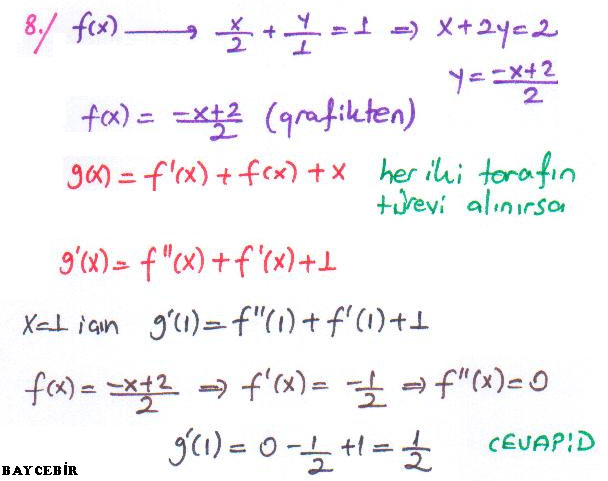 8./ f(x) ⟶ x/2 + y/1 = 1 ⇒ x+2y=2
y = -x+2/2
f(x) = -x+2/2 (grafikten)
g(x) = f'(x) + f(x) + x her iki tarafın
türevi alınırsa
g'(x) = f''(x) + f'(x) + 1
x=1 için g'(1) = f''(1) + f'(1) + 1
f(x) = -x+2/2 ⇒ f'(x) = -1/2 ⇒ f''(x) = 0
g'(1) = 0 - 1/2 + 1 = 1/2 CEVAP:D
BAYCEBİR